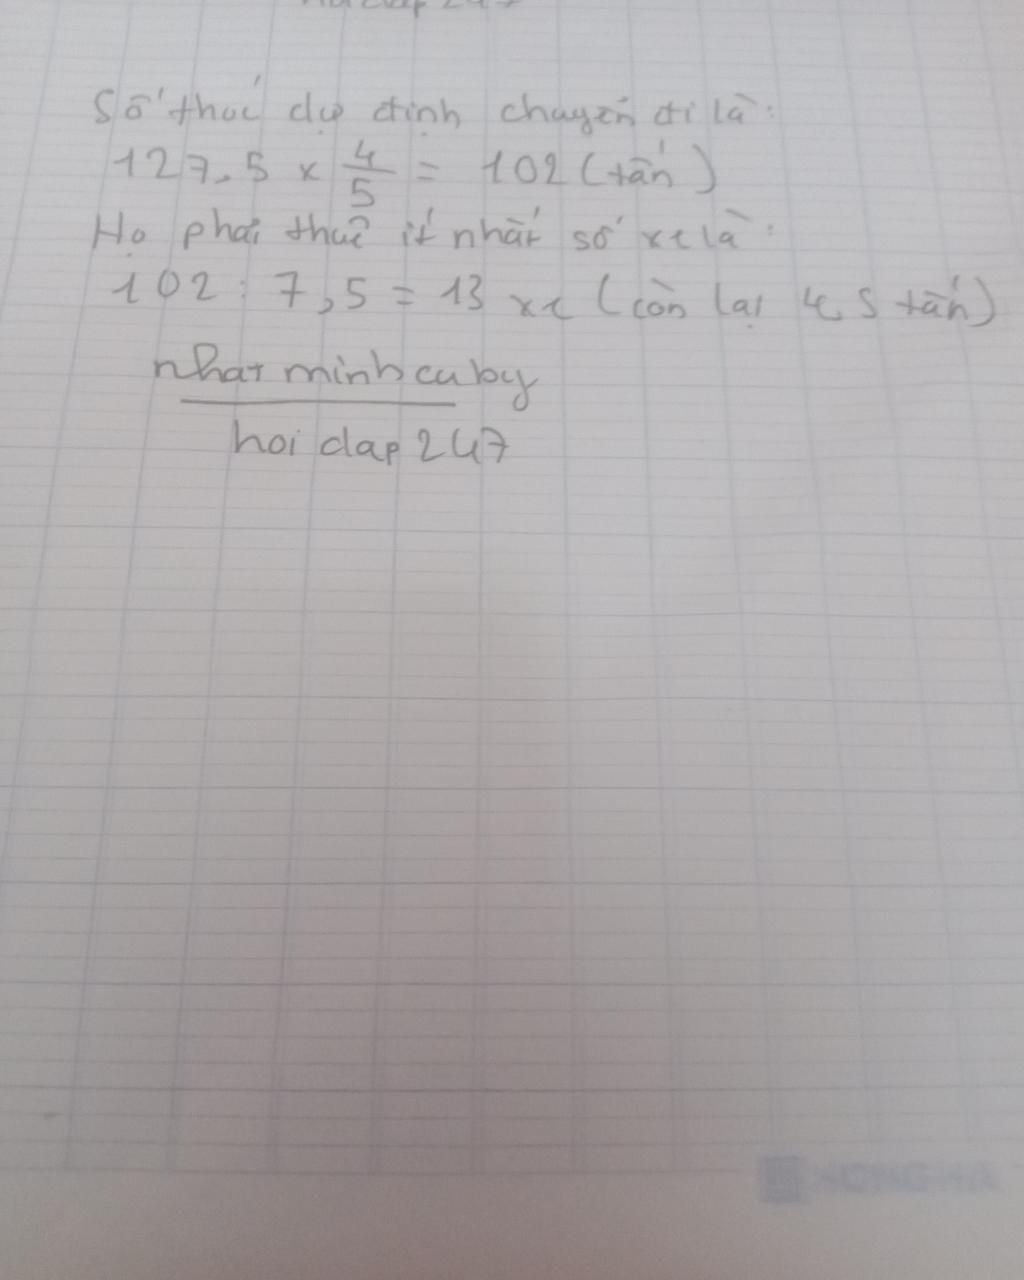 hoi dap 247
Số thóc dự định chuyển đi là:
127,5 x 4/5 = 102 (tấn)
Họ phải thuê ít nhất số xe là:
102 : 7,5 = 13 xe (còn lại 4,5 tấn)
nhat minh cu by
hoi dap 247
HONG HA